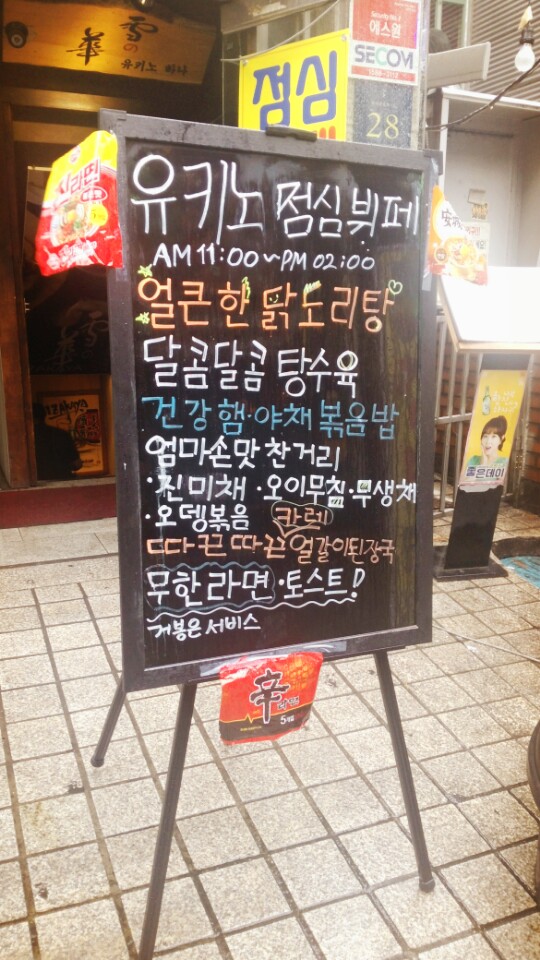 雪の華
유키노 하나
점심
에스원
SECOM
28
진라면
유키노 점심뷔페
AM 11:00 ~ PM 02:00
얼큰한 닭도리탕
달콤달콤 탕수육
건강햄·야채볶음밥
엄마손맛 찬거리
·진미채 ·오이무침·무생채
·오뎅볶음 카레
따끈따끈얼갈이된장국
무한라면·토스트!
개봉은 서비스
辛라면
5개입
좋은데이